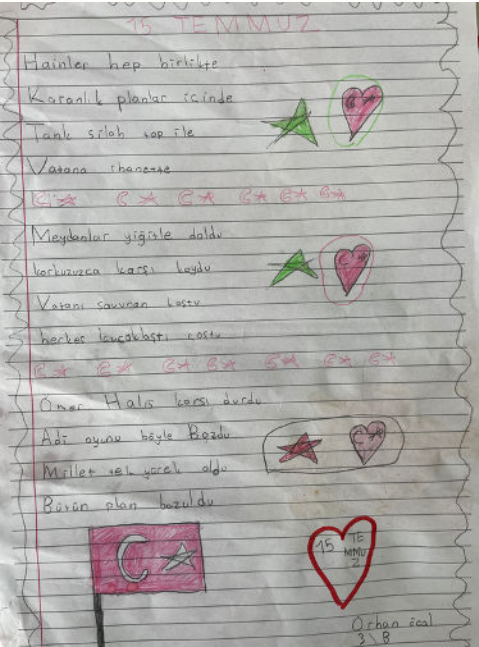 15 TEMMUZ
Hainler hep birlikte
Karanlık planlar içinde
Tank silah top ile
Vatana ihanette
Meydanlar yiğitle doldu
korkusuzca karşı koydu
Vatanı savunan koştu
herkes kucaklaştı coştu
Ömer Halis karşı durdu
Adi oyunu böyle Bozdu
Millet tek yürek oldu
Bütün plan bozuldu
15 TE
MMU
Z
Orhan
3\B